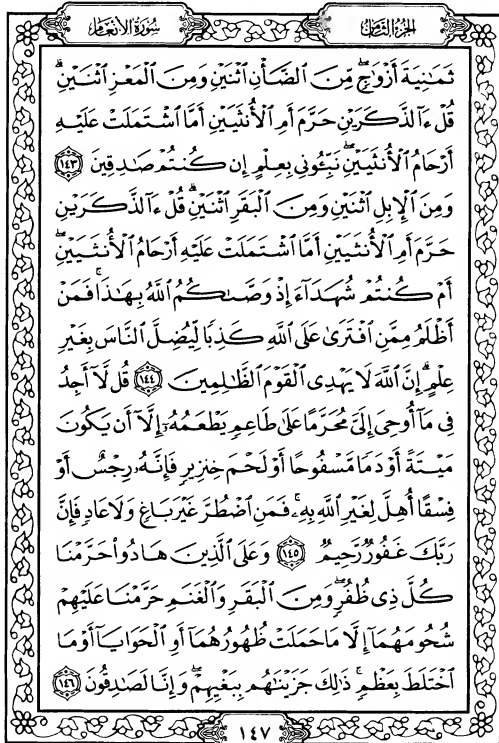 سُورَةُ الأَنْعَامِ
الجُزْءُ الثَّامِنُ
ثَمَـٰنِيَةَ أَزْوَٰجٍۖ مِّنَ ٱلضَّأْنِ ٱثْنَيْنِ وَمِنَ ٱلْمَعْزِ ٱثْنَيْنِۗ
قُلْ ءَآلذَّكَرَيْنِ حَرَّمَ أَمِ ٱلْأُنثَيَيْنِ أَمَّا ٱشْتَمَلَتْ عَلَيْهِ
أَرْحَامُ ٱلْأُنثَيَيْنِۖ نَبِّـُٔونِى بِعِلْمٍ إِن كُنتُمْ صَـٰدِقِينَ ١٤٣
وَمِنَ ٱلْإِبِلِ ٱثْنَيْنِ وَمِنَ ٱلْبَقَرِ ٱثْنَيْنِۗ قُلْ ءَآلذَّكَرَيْنِ
حَرَّمَ أَمِ ٱلْأُنثَيَيْنِ أَمَّا ٱشْتَمَلَتْ عَلَيْهِ أَرْحَامُ ٱلْأُنثَيَيْنِۖ
أَمْ كُنتُمْ شُهَدَآءَ إِذْ وَصَّىٰكُمُ ٱللَّهُ بِهَـٰذَاۚ فَمَنْ
أَظْلَمُ مِمَّنِ ٱفْتَرَىٰ عَلَى ٱللَّهِ كَذِبًا لِّيُضِلَّ ٱلنَّاسَ بِغَيْرِ
عِلْمٍۗ إِنَّ ٱللَّهَ لَا يَهْدِى ٱلْقَوْمَ ٱلظَّـٰلِمِينَ ١٤٤ قُل لَّآ أَجِدُ
فِى مَآ أُوحِىَ إِلَىَّ مُحَرَّمًا عَلَىٰ طَاعِمٍ يَطْعَمُهُۥٓ إِلَّآ أَن يَكُونَ
مَيْتَةً أَوْ دَمًا مَّسْفُوحًا أَوْ لَحْمَ خِنزِيرٍ فَإِنَّهُۥ رِجْسٌ أَوْ
فِسْقًا أُهِلَّ لِغَيْرِ ٱللَّهِ بِهِۦۚ فَمَنِ ٱضْطُرَّ غَيْرَ بَاغٍ وَلَا عَادٍ فَإِنَّ
رَبَّكَ غَفُورٌ رَّحِيمٌ ١٤٥ وَعَلَى ٱلَّذِينَ هَادُوا۟ حَرَّمْنَا
كُلَّ ذِى ظُفُرٍۖ وَمِنَ ٱلْبَقَرِ وَٱلْغَنَمِ حَرَّمْنَا عَلَيْهِمْ
شُحُومَهُمَآ إِلَّا مَا حَمَلَتْ ظُهُورُهُمَآ أَوِ ٱلْحَوَايَآ أَوْ مَا
ٱخْتَلَطَ بِعَظْمٍۚ ذَٰلِكَ جَزَيْنَـٰهُم بِبَغْيِهِمْۖ وَإِنَّا لَصَـٰدِقُونَ ١٤٦
١٤٧